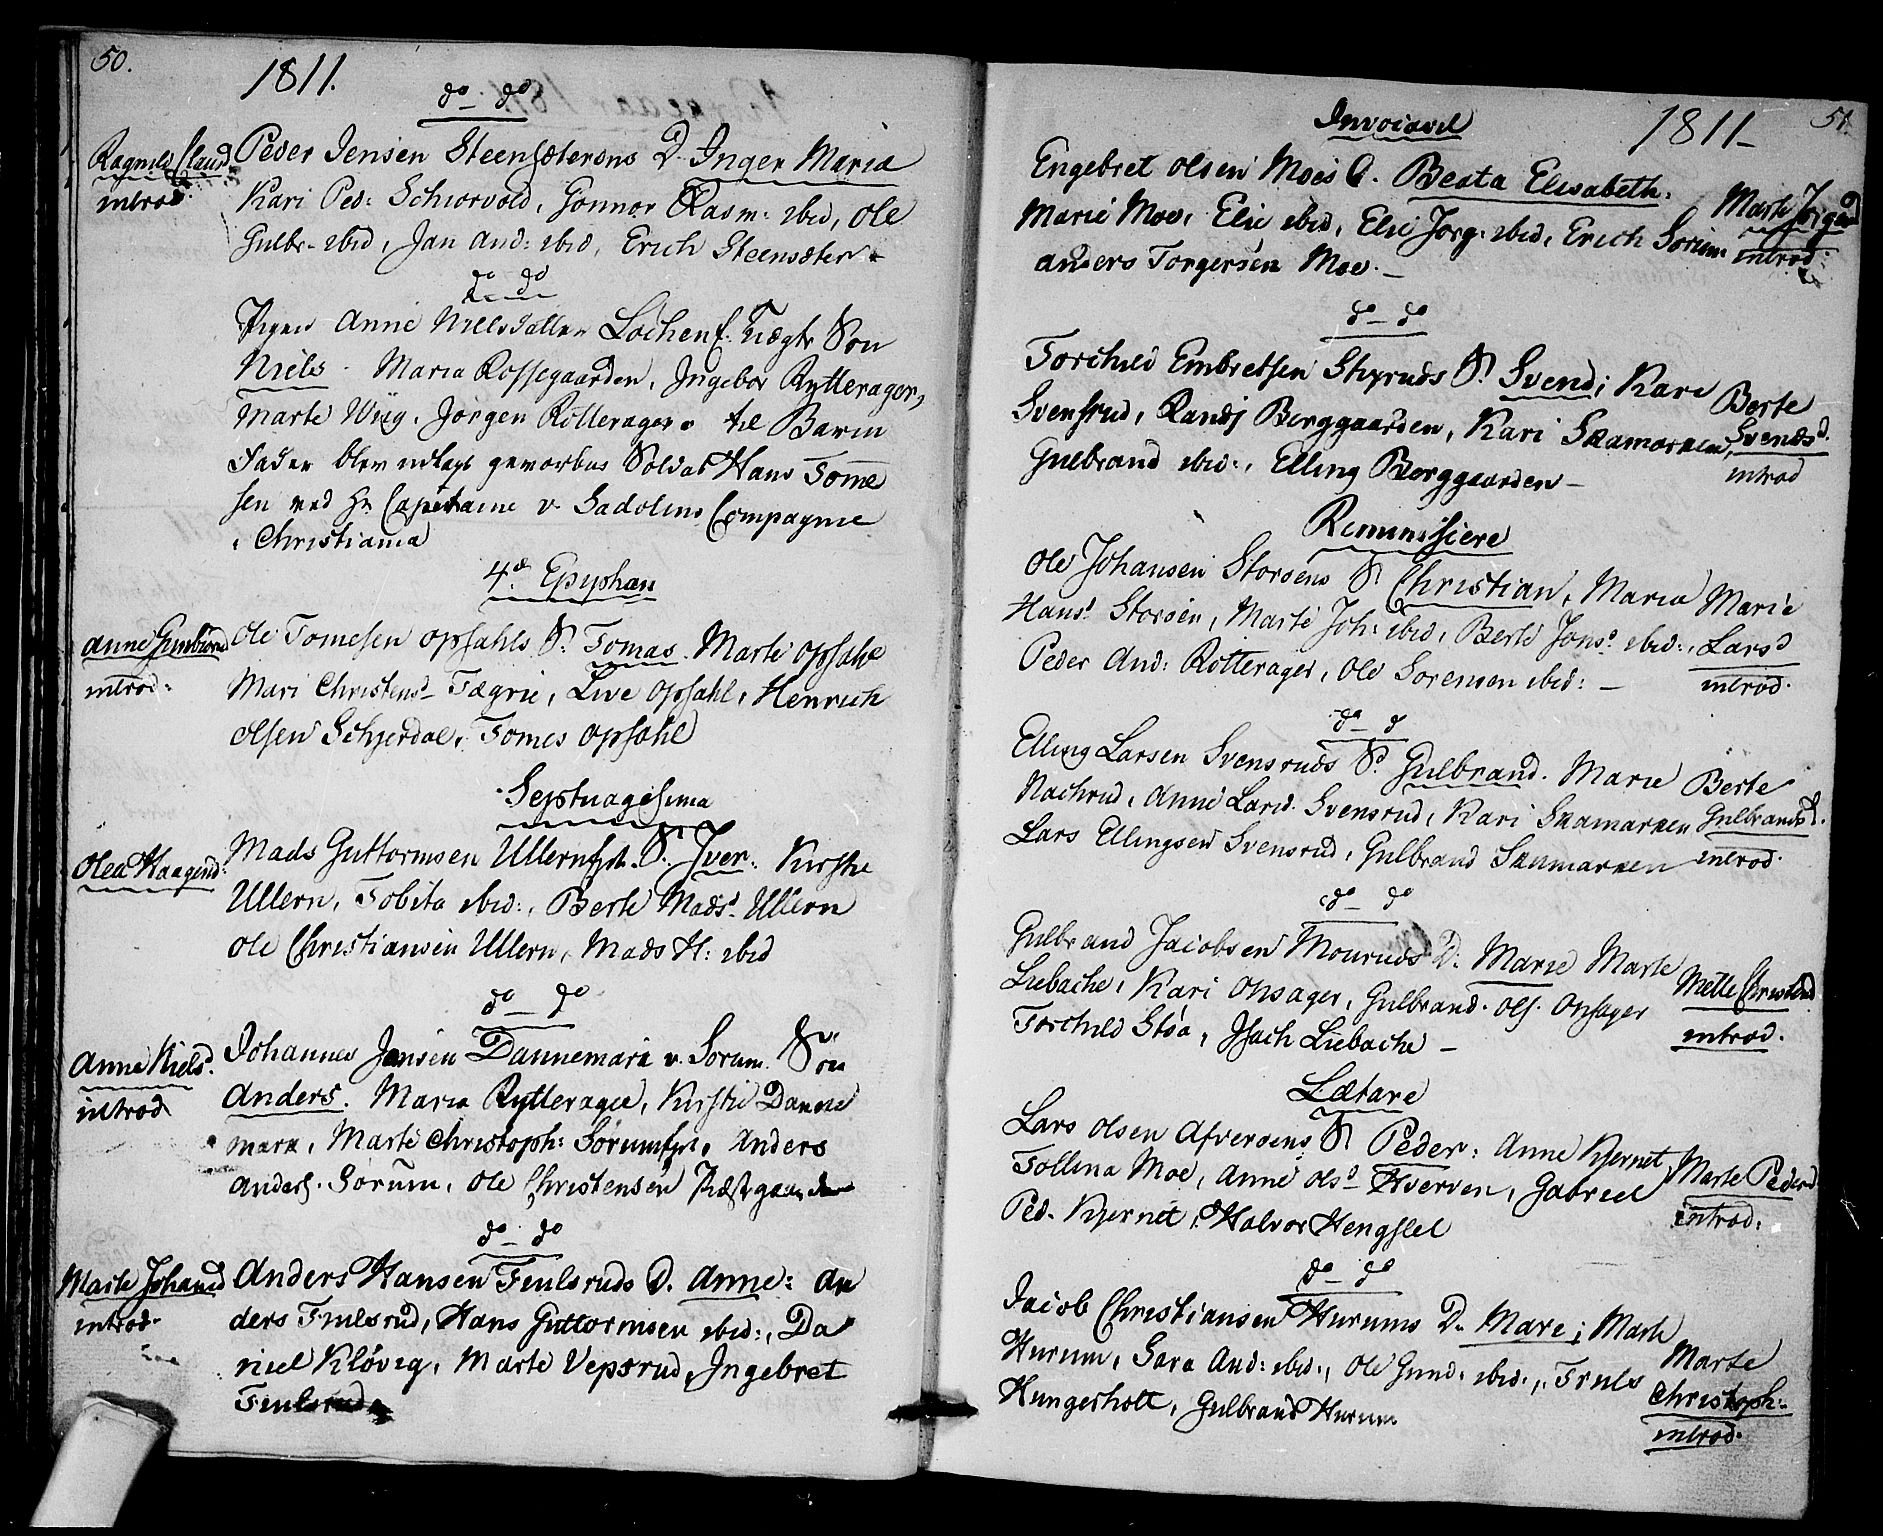 50.
1811.
do – do
Ragnild Clausd. Peder Jensen Steensæterens D. Inger Maria
introd. Kari Ped: Schiorvold, Gonnor Rasm: ibid, Ole
Gulbr. ibid, Jan And: ibid, Erich Steensæter.
do do
Pigen Anne Nielsdatter Lochens uægte Søn
Niels. Maria Rossegaarden, Ingebor Rytterager,
Marte Wiig, Jørgen Rytterager. til Barn
Fader blev udlagt gevorben Soldat Hans Tomme
sen ved Hr Capitaine v. Sadolins Compagnie
i Christiania
4de Epiphan
Anne Gunbiørnd Ole Tomesen Opsahls S. Tomas. Marte Opsahl
introd: Mari Christensd. Fægrie, Live Opsahl, Henrich
Olsen Schjerdal, Tomes Opsahl
Septuagesima
Olea Haagend: Mads Guttormsen Ullernejet. S. Iver. Kirstie
Ullern, Tobita ibid:, Berte Madsd. Ullern
Ole Christiansen Ullern, Mads H: ibid
do – do
Anne Nielsd. Johannes Jensen Dannemark v. Sørum. Søn
introd Anders. Maria Rytterager, Kirstie Danne
mark, Marte Christoph: Sørumejet, Anders
Anders. Sørum, Ole Christensen Præstgaarden
do – do
Marte Johansd Anders Hansen Finlsruds D. Anne: An
introd. ders Finlsrud, Hans Guttormsen ibid:, Da
niel Kløvig, Marte Vepsrud, Ingebret
Finlsrud
51.
1811–
Invocavit
Engebret Olsen Moes D. Beata Elisabeth.
Marie Moe, Elie ibid, Elie Jørg: ibid, Erich Sørum Marte Jørgend
Anders Torgersen Moe. – introd.
do – do
Torchild Embretsen Styruds S. Svend; Kari Berte
Svensrud, Randj Borggaarden, Kari Skamarken, Svendsd.
Gulbrand ibid:, Elling Borggaarden – introd
Reminiscere
Ole Johansen Storøens S. Christian, Maria Marie
Hansd. Storøen, Marte Joh: ibid, Berte Jonsd. ibid:, Larsd
Peder And: Rotterager, Ole Sørensen ibid: – introd.
do – d
Elling Larsen Svensruds S. Gulbrand. Marie Berte
Nachrud, Anne Larsd. Svensrud, Kari Skamarken Gulbrandsd.
Lars Ellingsen Svensrud, Gulbrand Skamarken introd.
do – do
Gulbrand Jacobsen Mouruds D: Marie Marte Mette Christend
Liebache, Kari Opsager, Gulbrand. Ols. Opsager
Torchild Støa, Isach Liebache – introd.
Lætare
Lars Olsen Afversøens S. Peder: Anne Kjernet,
Tollina Moe, Anne Olsd. Hverven, Gabriel Marte Pedersd
Ped. Kjernet, Halvor Hengslet introd:
do – do
Jacob Christiansen Hurums D. Mari; Marte
Hurum, Sara And: ibid:, Ole Gund: ibid:, Truls Marte
Hungerholt, Gulbrand Hurum Christoph:
introd.